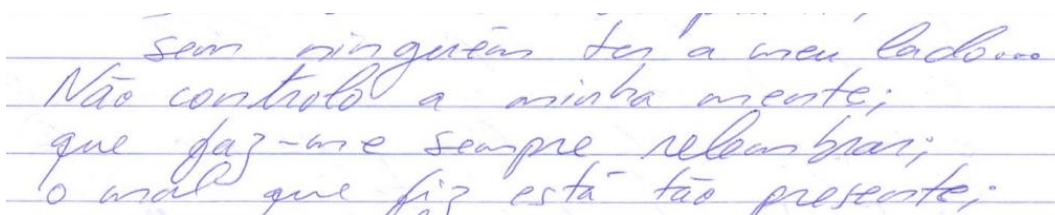 sem ninguém ter a meu lado...
Não controlo a minha mente;
que faz-me sempre relembrar;
o mal que fiz está tão presente;